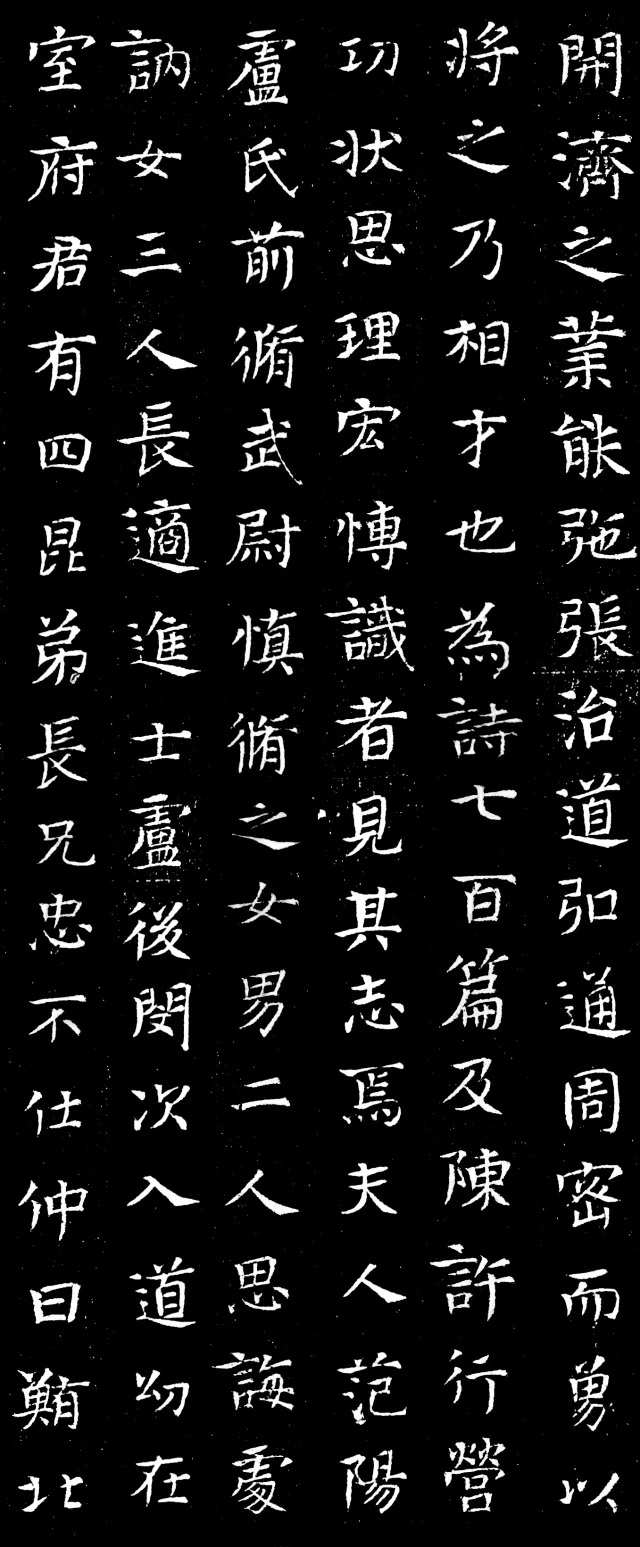 開濟之業能弛張治道弘通周密而勇以
將之乃相才也為詩七百篇及陳許行營
功狀思理宏博識者見其志焉夫人范陽
盧氏前脩武尉慎脩之女男二人思誨處
訥女三人長適進士盧後閔次入道幼在
室府君有四昆弟長兄忠不仕仲曰鄵北